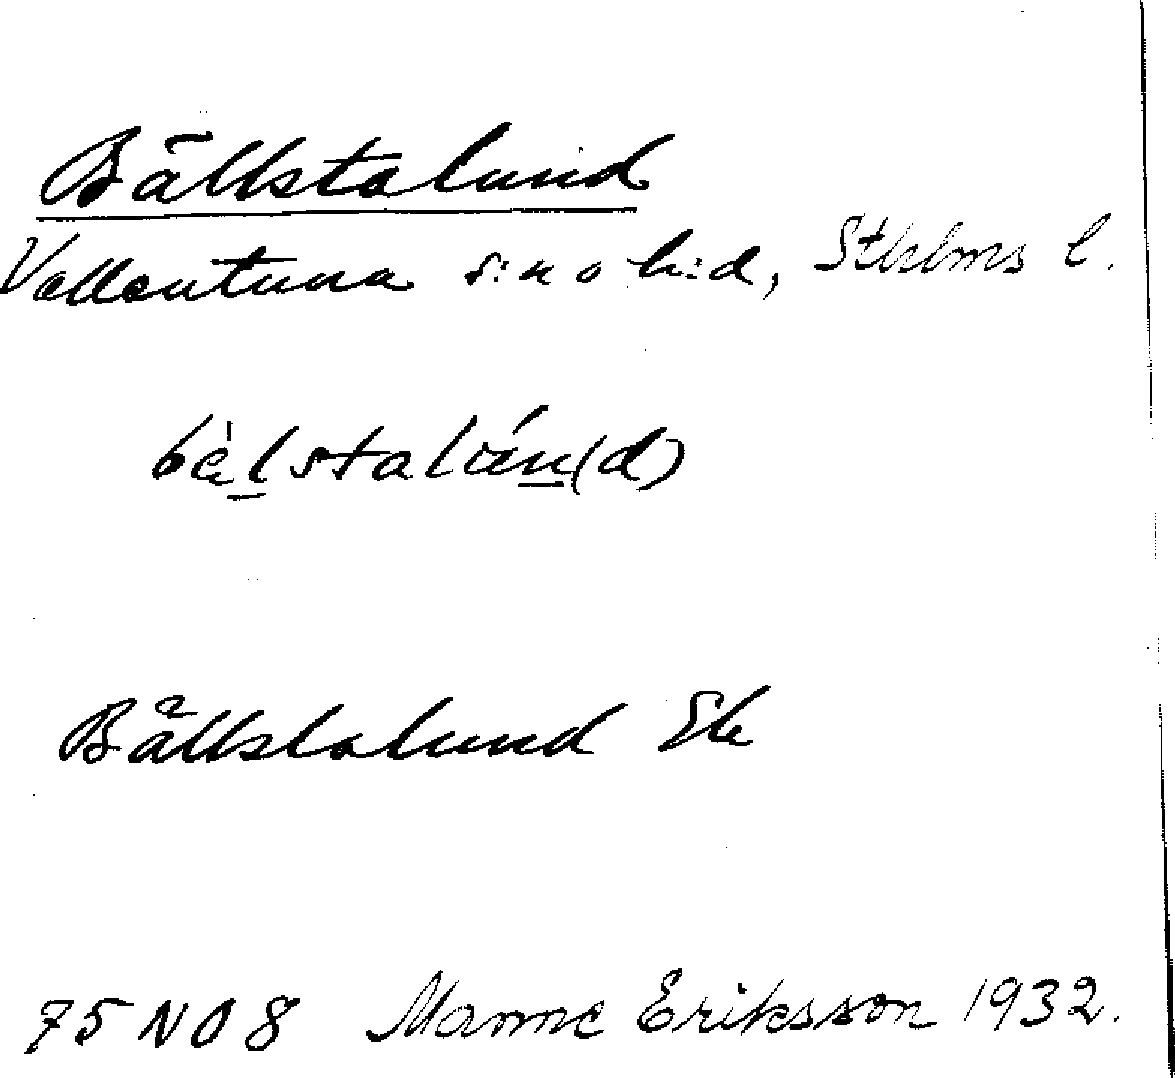 Bällstalund
Vallentuna s:n o h:d, Sthlms l.
bèlstalún(d)
Bällstalund Ek
75 NO 8 Manne Eriksson 1932.